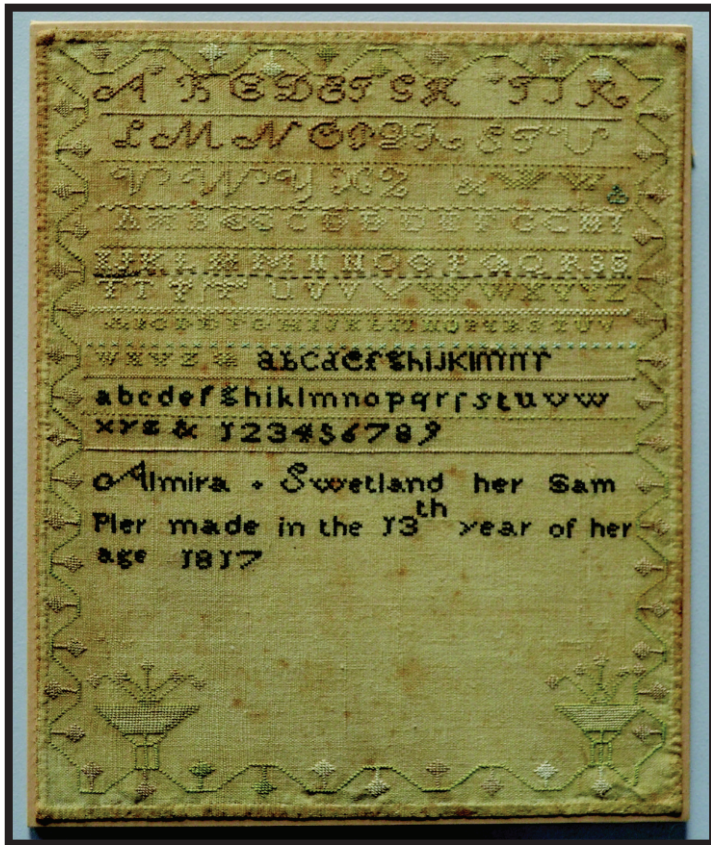 A B C D E F G H I J K
L M N O P Q R S T U
V W Y X Z &
A B C D E F G H I J K L M N O P Q R S T U V
W X Y Z & a b c d e f g h i J K l m n r
a b c d e f g h i k l m n o p q r ſ s t u v w
x y z & 1 2 3 4 5 6 7 8 9
Almira . Swetland her Sam
Pler made in the 13th year of her
age 1817